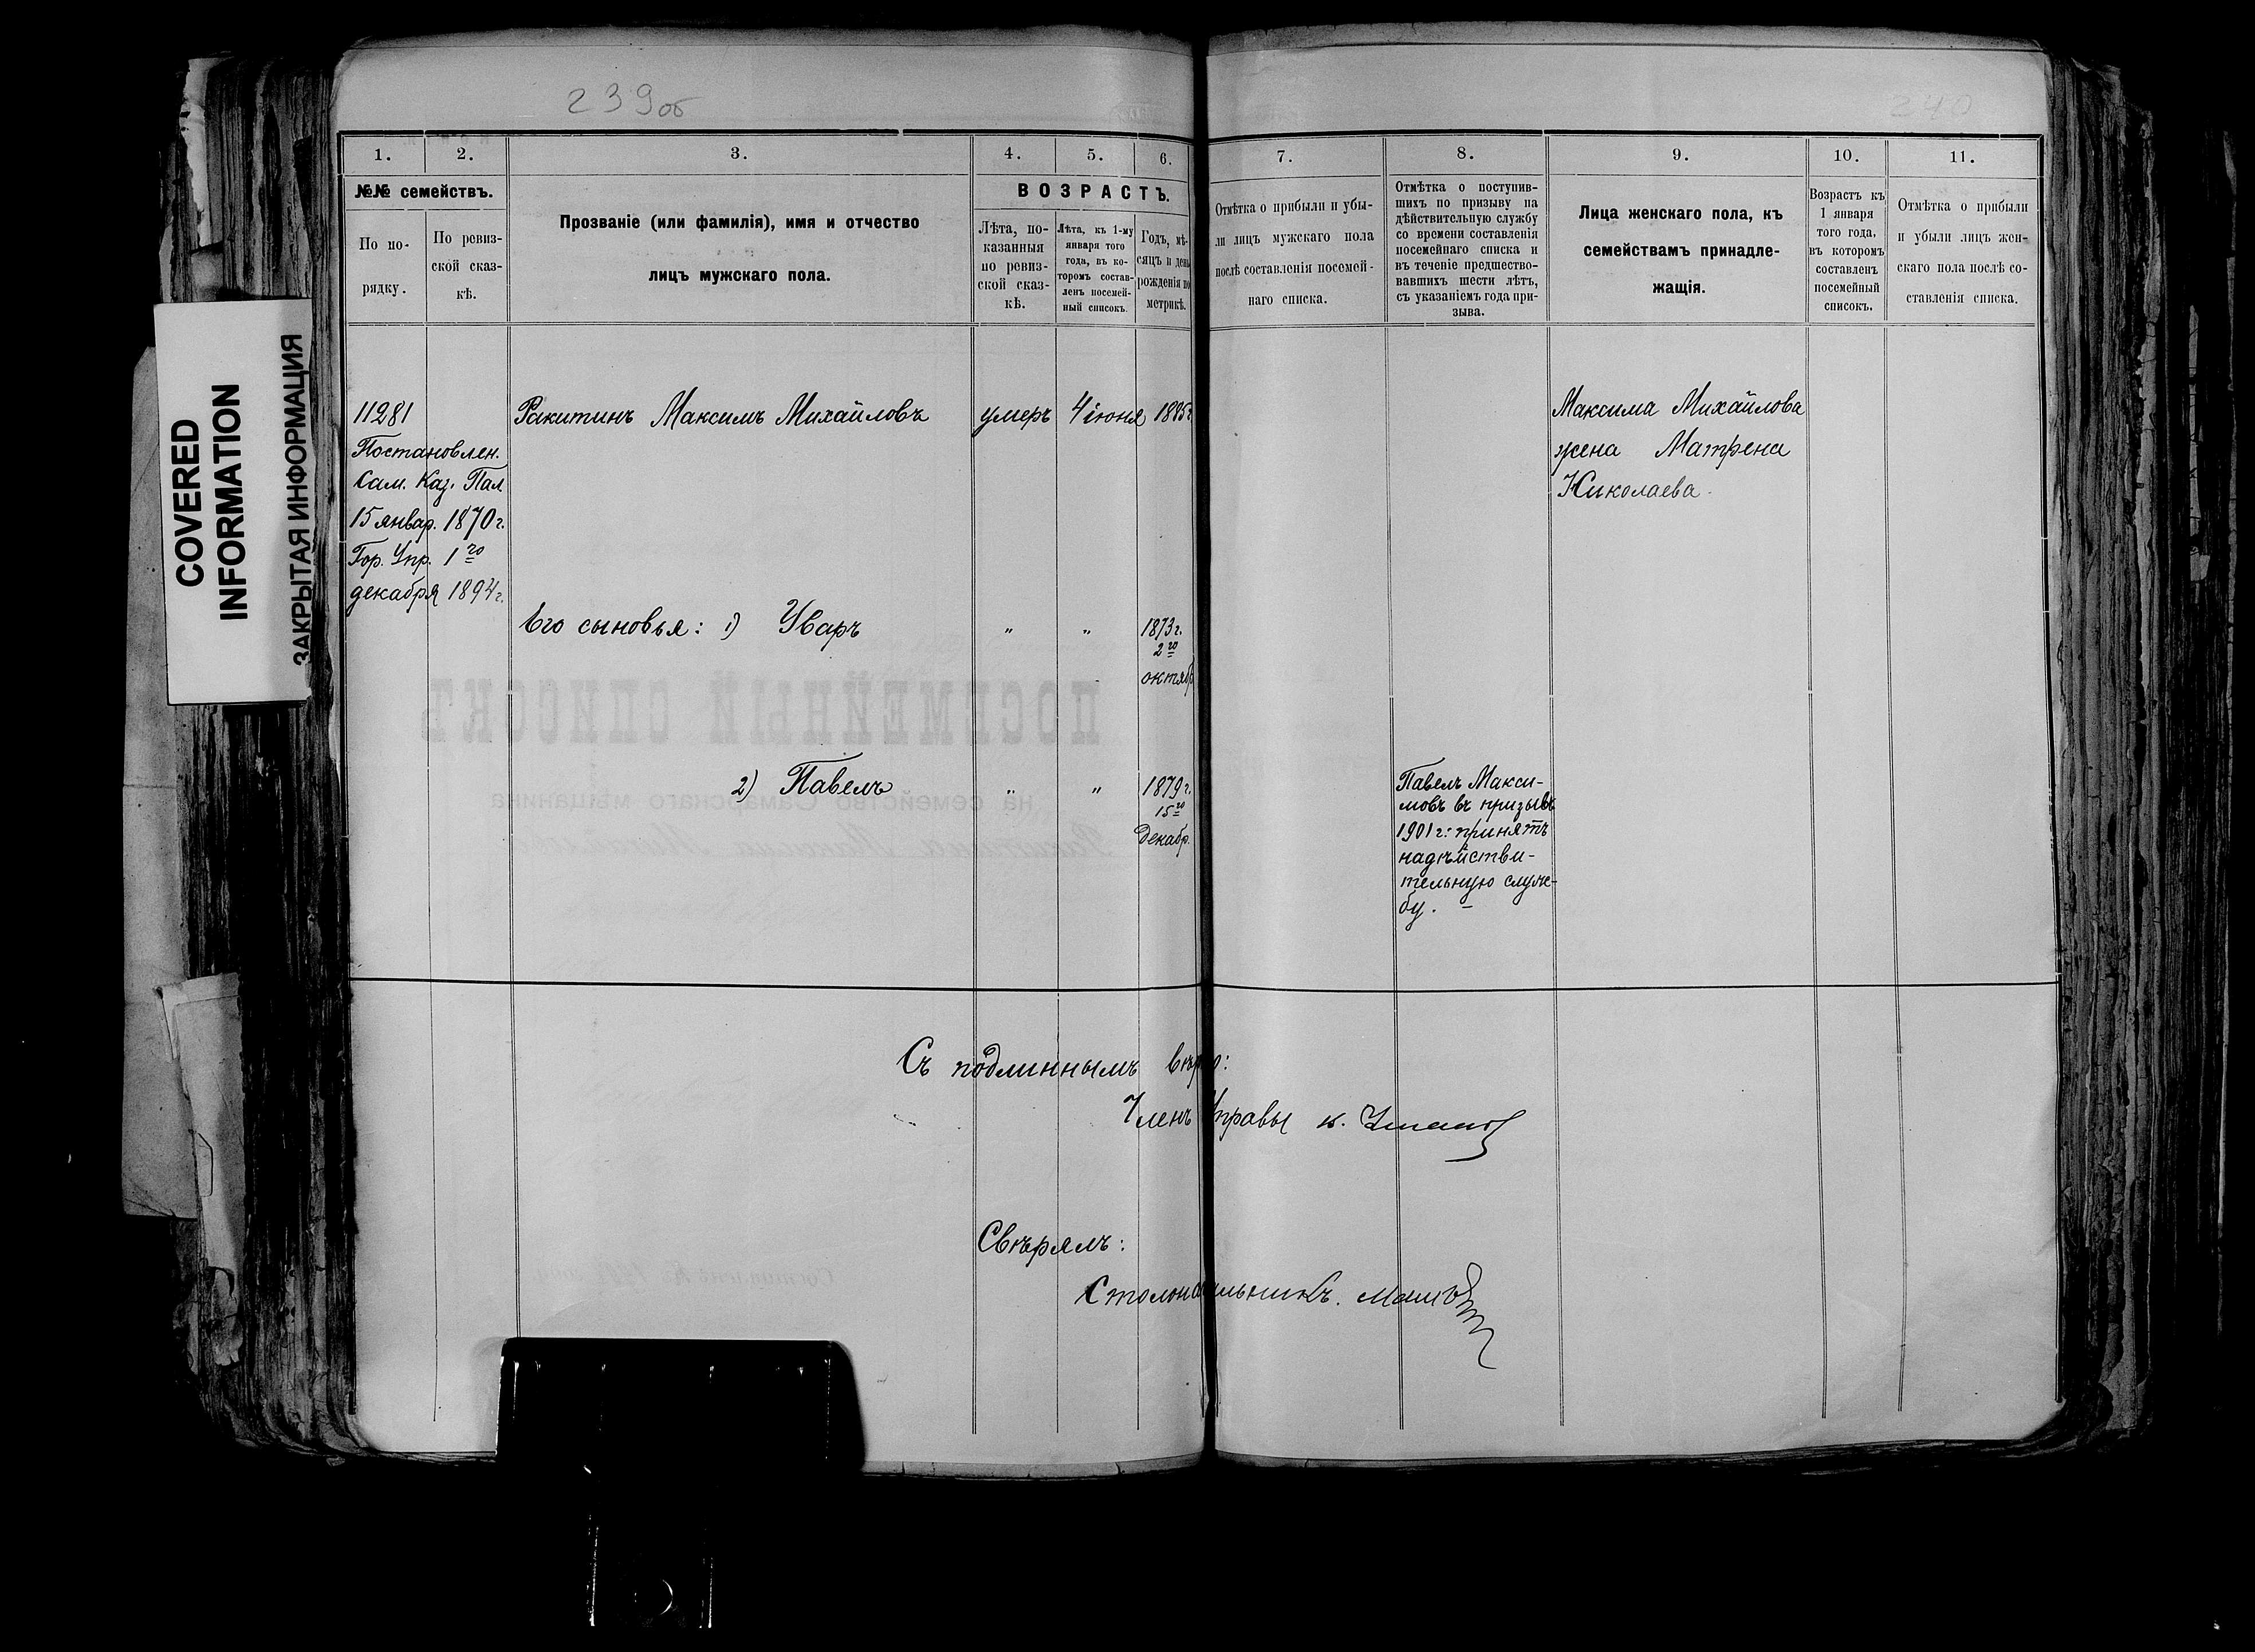 239об
240
1.
2.
3.
4.
5.
6.
7.
8.
9.
10.
11.
№№ семействъ.
По по-
рядку.
По ревиз-
ской сказ-
кѣ.
Прозваніе (или фамилія), имя и отчество
лицъ мужскаго пола.
ВОЗРАСТЪ.
Лѣта, по-
казанныя
по ревиз-
ской сказ-
кѣ.
Лѣта, къ 1-му
января того
года, въ ко-
торомъ состав-
ленъ посемей-
ный списокъ.
Годъ, мѣ-
сяцъ и день
рожденія по
метрикѣ.
Отмѣтка о прибыли и убы-
ли лицъ мужскаго пола
послѣ составленія посемей-
наго списка.
Отмѣтка о поступив-
шихъ по призыву на
дѣйствительную службу
со времени составленія
посемейнаго списка и
въ теченіе предшество-
вавшихъ шести лѣтъ,
съ указаніемъ года при-
зыва.
Лица женскаго пола, къ
семействамъ принадле-
жащія.
Возрастъ къ
1 января
того года,
въ которомъ
составленъ
посемейный
списокъ.
Отмѣтка о прибыли
и убыли лицъ жен-
скаго пола послѣ со-
ставленія списка.
COVERED
INFORMATION
ЗАКРЫТАЯ ИНФОРМАЦИЯ
11281
Постановлен.
Сам. Каз. Пал
15 январ. 1870 г.
Гор. Упр. 1го
декабря 1894 г.
Ракитинъ Максимъ Михайловъ умеръ 4 іюня 1895 г.
Максима Михайлова
жена Матрена
Николаева.
Его сыновья: 1) Уваръ " "
1873 г.
2го
октяб
2) Павелъ " "
1879 г.
15го
Декабр.
Павелъ Макси-
мовъ въ призывъ
1901 г: принятъ
на дѣйстви-
тельную служ-
бу. –
Съ подлиннымъ вѣрно:
Членъ Управы
Свѣрялъ:
Столоначальникъ.
ПОСЕМЕЙНЫЙ СПИСОКЪ
на семейство Самарскаго мѣщанина